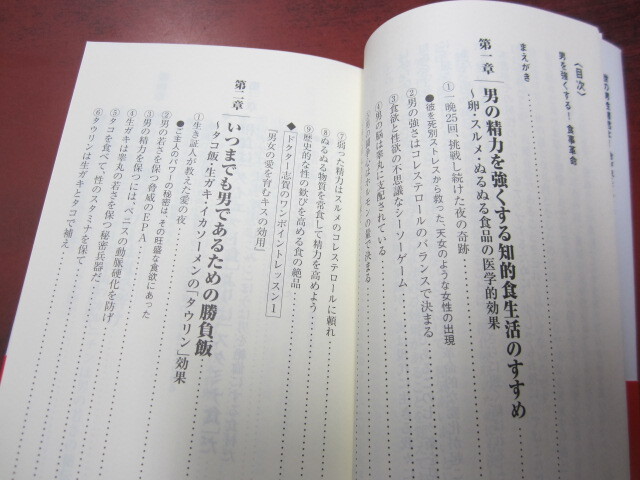 〈目次〉
男を強くする! 食事革命
まえがき
第一章 男の精力を強くする知的食生活のすすめ
~卵・スルメ・ぬるぬる食品の医学的効果
①一晩25回、挑戦し続けた夜の奇跡
●彼を死別ストレスから救った、天女のような女性の出現
②男の強さはコレステロールのバランスで決まる
③食欲と性欲の不思議なシーソーゲーム
④男の脳は睾丸に支配されている
ホルモンの量で決まる
⑦弱った精力はスルメのコレステロールに頼れ
⑧ぬるぬる物質を常食して精力を高めよう
⑨歴史的な性の歓びを高める食の絶品
◆ドクター志賀のワンポイントレッスン1
『男女の愛を育むキスの効用』
第二章 いつまでも男であるための勝負飯
~タコ飯・生ガキ・イカソーメンの「タウリン」効果
①生き証人が教えた愛の夜
●ご主人のパワーの秘密は、その旺盛な食欲にあった
②男の若さを保つ秘密
③男の精力を保つ脅威のEPA
④男の精力を保つには、ペニスの動脈硬化を防げ
④生ガキは睾丸の若さを保つ秘密兵器だ
⑤タコを食べて、性のスタミナを保て
⑥タウリンは生ガキとタコで補え